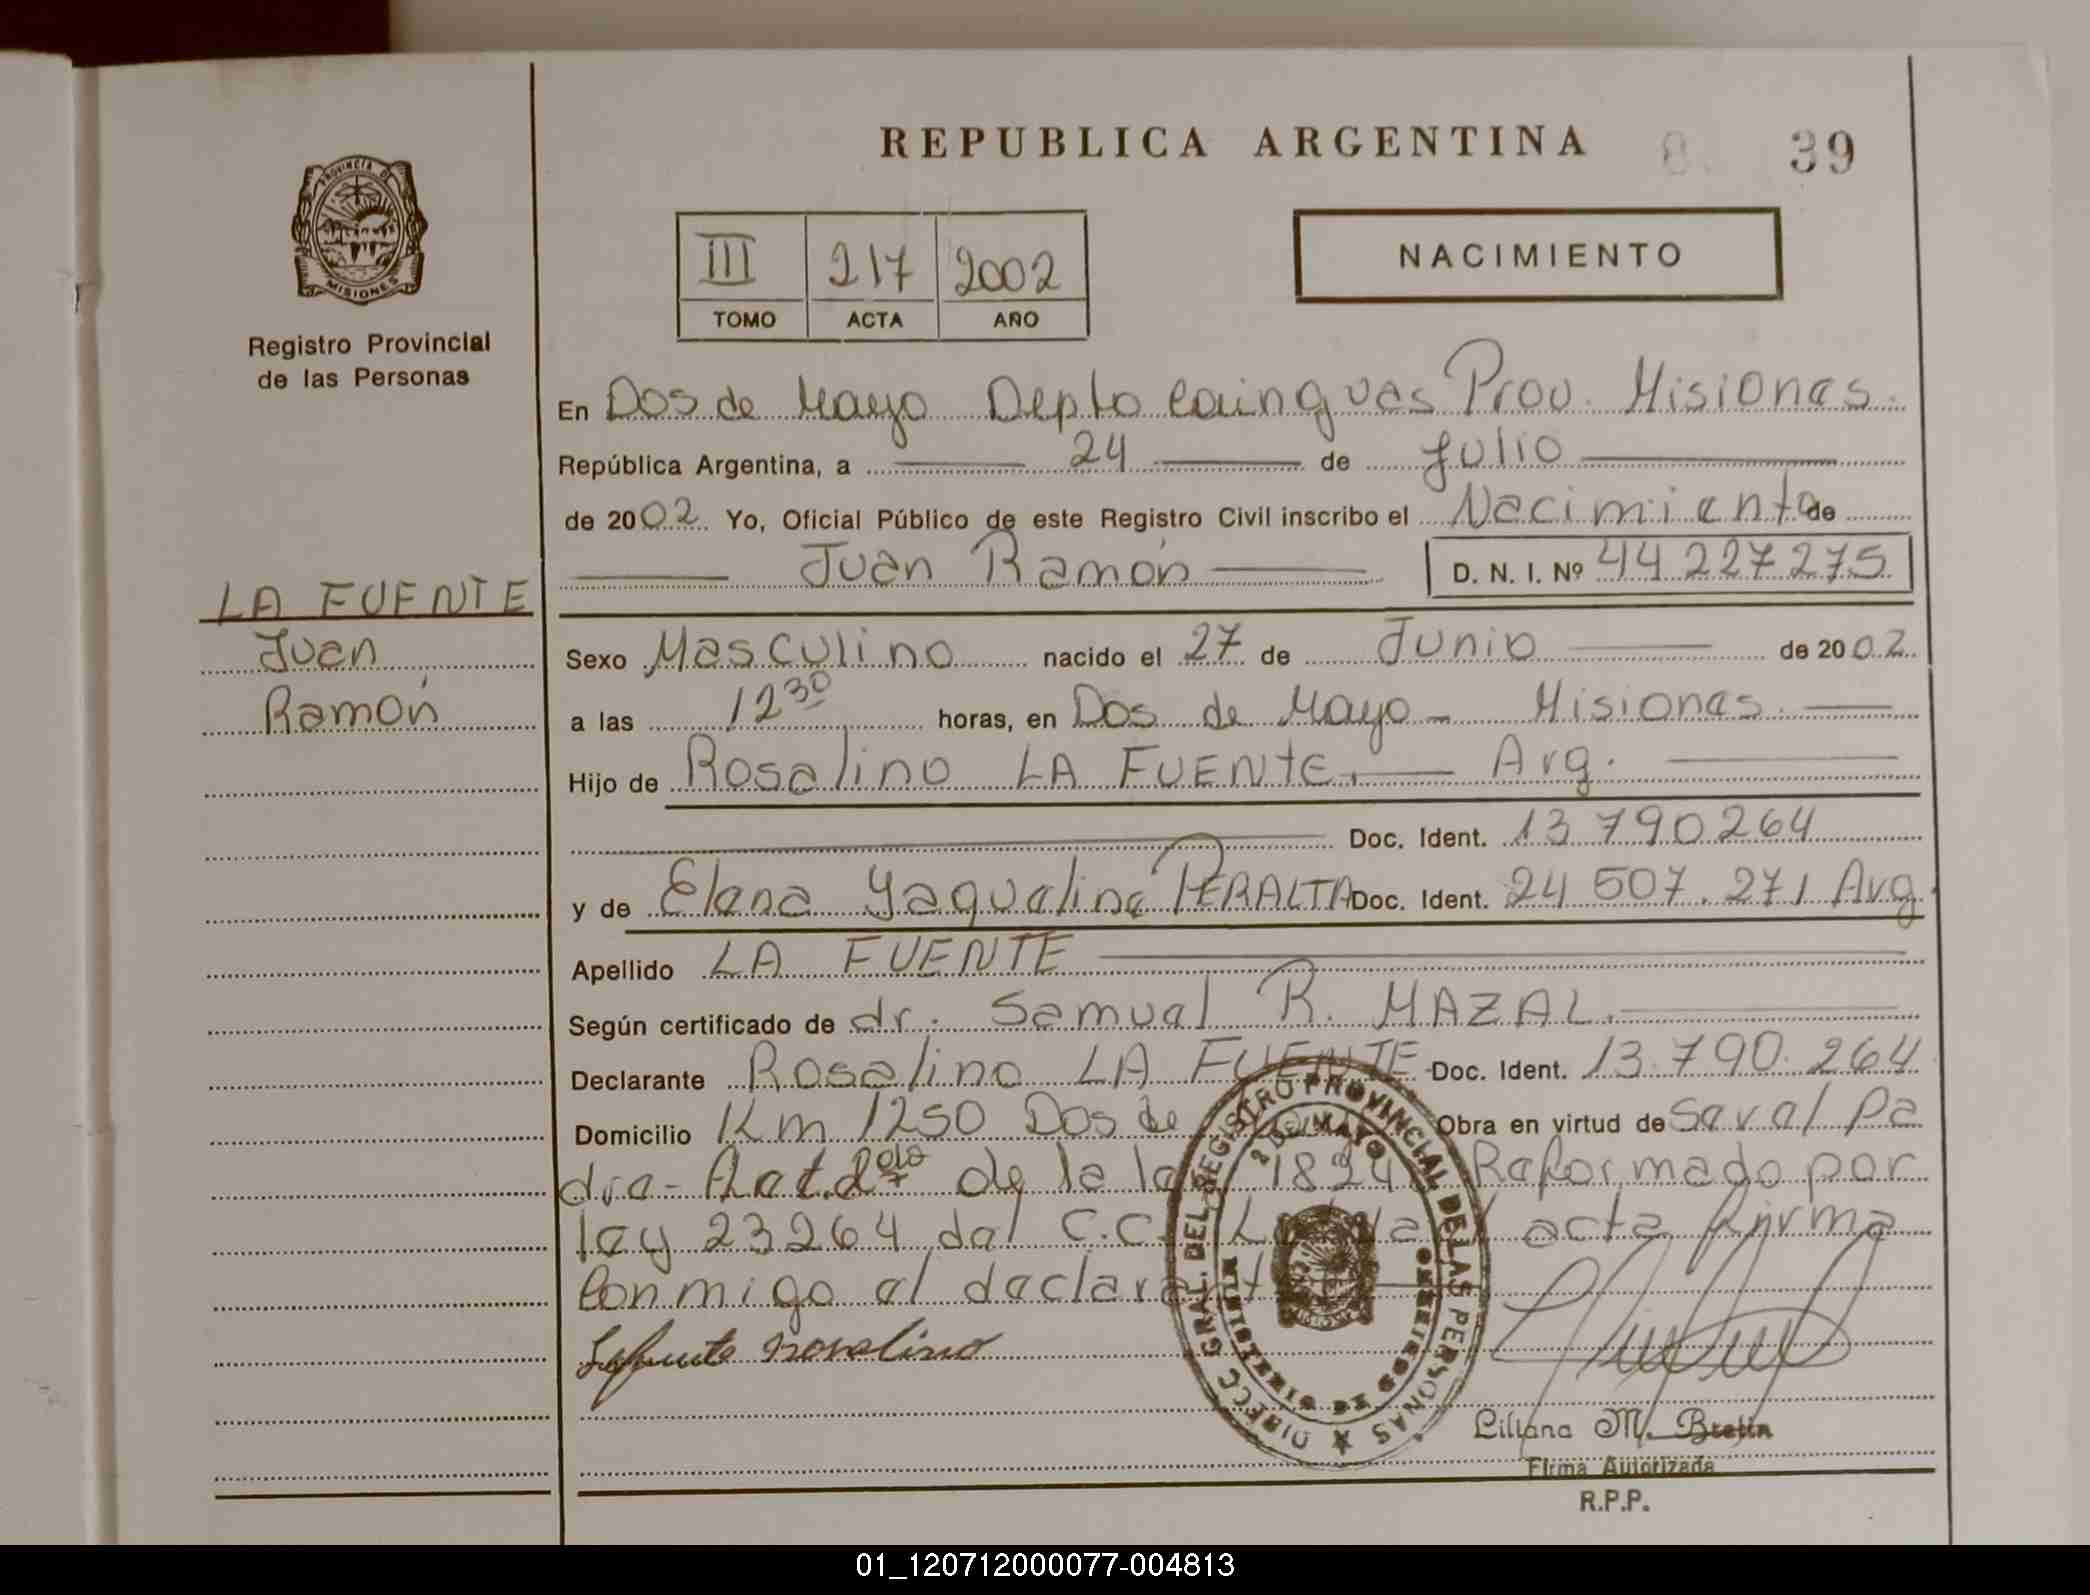 REPUBLICA ARGENTINA
39
PROVINCIA DE
MISIONES
Registro Provincial
de las Personas
III 217 2002
TOMO ACTA AÑO
NACIMIENTO
En Dos de Mayo Depto Cainguas Prov. Misiones.
República Argentina, a 24 de Julio
de 2002 Yo, Oficial Público de este Registro Civil inscribo el Nacimiento de
Juan Ramón D. N. I. Nº 44 227 275
LA FUENTE
Juan
Ramón
Sexo Masculino nacido el 27 de Junio de 2002
a las 12 30 horas, en Dos de Mayo - Misiones.
Hijo de Rosalino LA FUENTE. Arg.
Doc. Ident. 13 790 264
y de Elena Yaquelina PERALTA Doc. Ident. 24 507.271 Arg.
Apellido LA FUENTE
Según certificado de dr. Samuel R. MAZAL.
Declarante Rosalino LA FUENTE Doc. Ident. 13.790.264
Domicilio Km 1250 Dos de Obra en virtud de Ser el Pa
dre- Art. 2 de la 1824 Reformado por
ley 23264 del C.C. Leída el acta firma
Conmigo el declarant
Lafuente rosalino
DIRECC. GRAL. DEL REGISTRO PROVINCIAL DE LAS PERSONAS
2 DE MAYO
MISIONES
Liliana M. Bretin
Firma Autorizada
R.P.P.
01_120712000077-004813